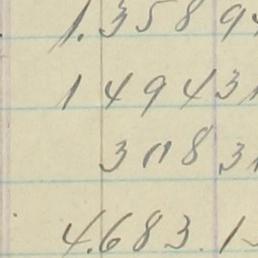 1.358 9
1 494 3
308 3
4.683.1